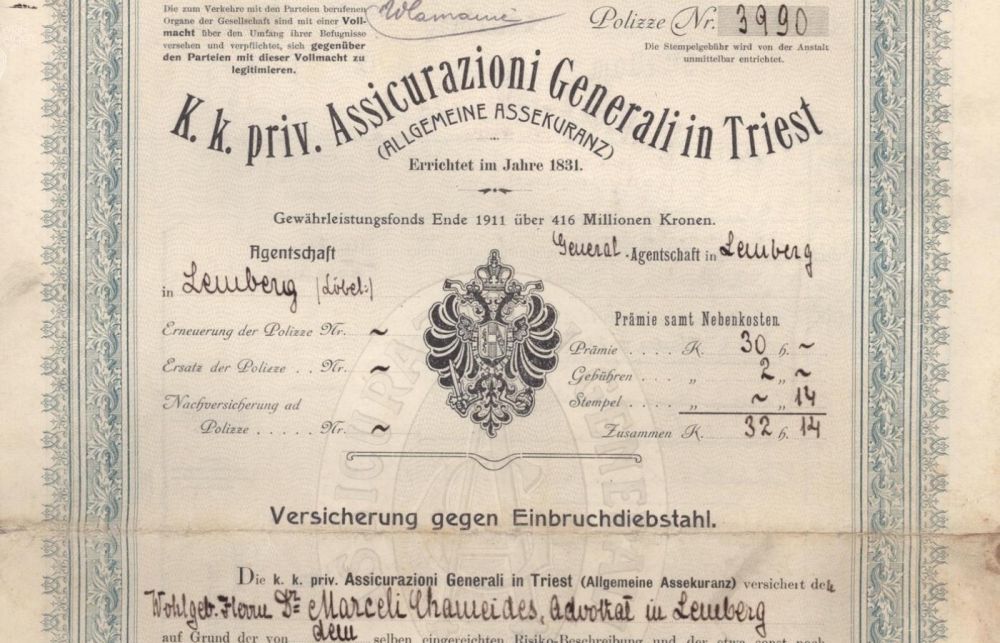 Die zum Verkehre mit den Parteien berufenen
Organe der Gesellschaft sind mit einer Voll-
macht über den Umfang ihrer Befugnisse
versehen und verpflichtet, sich gegenüber
den Parteien mit dieser Vollmacht zu
legitimieren.
Polizze Nr. 3990
Die Stempelgebühr wird von der Anstalt
unmittelbar entrichtet.
K. k. priv. Assicurazioni Generali in Triest
(ALLGEMEINE ASSEKURANZ)
Errichtet im Jahre 1831.
Gewährleistungsfonds Ende 1911 über 416 Millionen Kronen.
Agentschaft
in Lemberg (Löbel:)
General-Agentschaft in Lemberg
Erneuerung der Polizze Nr. ~
Ersatz der Polizze . . Nr. ~
Nachversicherung ad
Polizze . . . . . . Nr. ~
Prämie samt Nebenkosten.
Prämie . . . . K. 30 h. ~
Gebühren . . . „ 2 „ ~
Stempel . . . . „ ~ „ 14
Zusammen K. 32 h. 14
Versicherung gegen Einbruchdiebstahl.
Die k. k. priv. Assicurazioni Generali in Triest (Allgemeine Assekuranz) versichert den
Wohlgeb. Herrn Dr. Marceli Chameides, Advokat in Lemberg
auf Grund der von dem selben eingereichten Risiko-Beschreibung und der etwa sonst noch